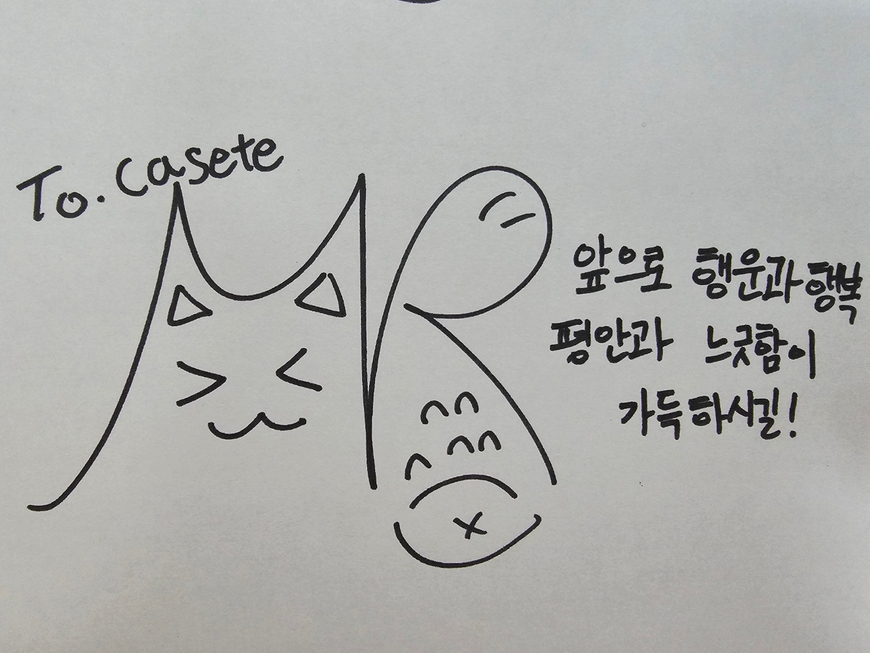 To. Casete
앞으로 행운과 행복
평안과 느긋함이
가득하시길!